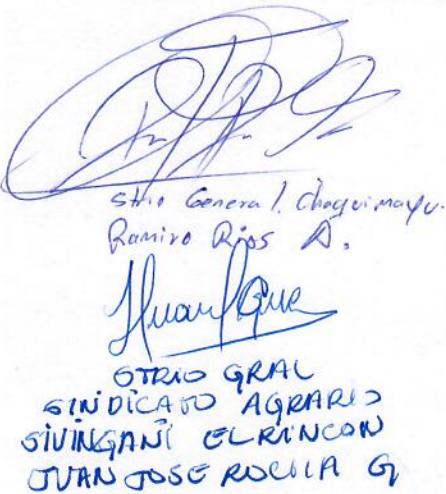 Strio General. Choquimayu.
Ramiro Rios A.
STRIO GRAL
SINDICATO AGRARIO
SIVINGANI EL RINCON
JUAN JOSE ROCHA G